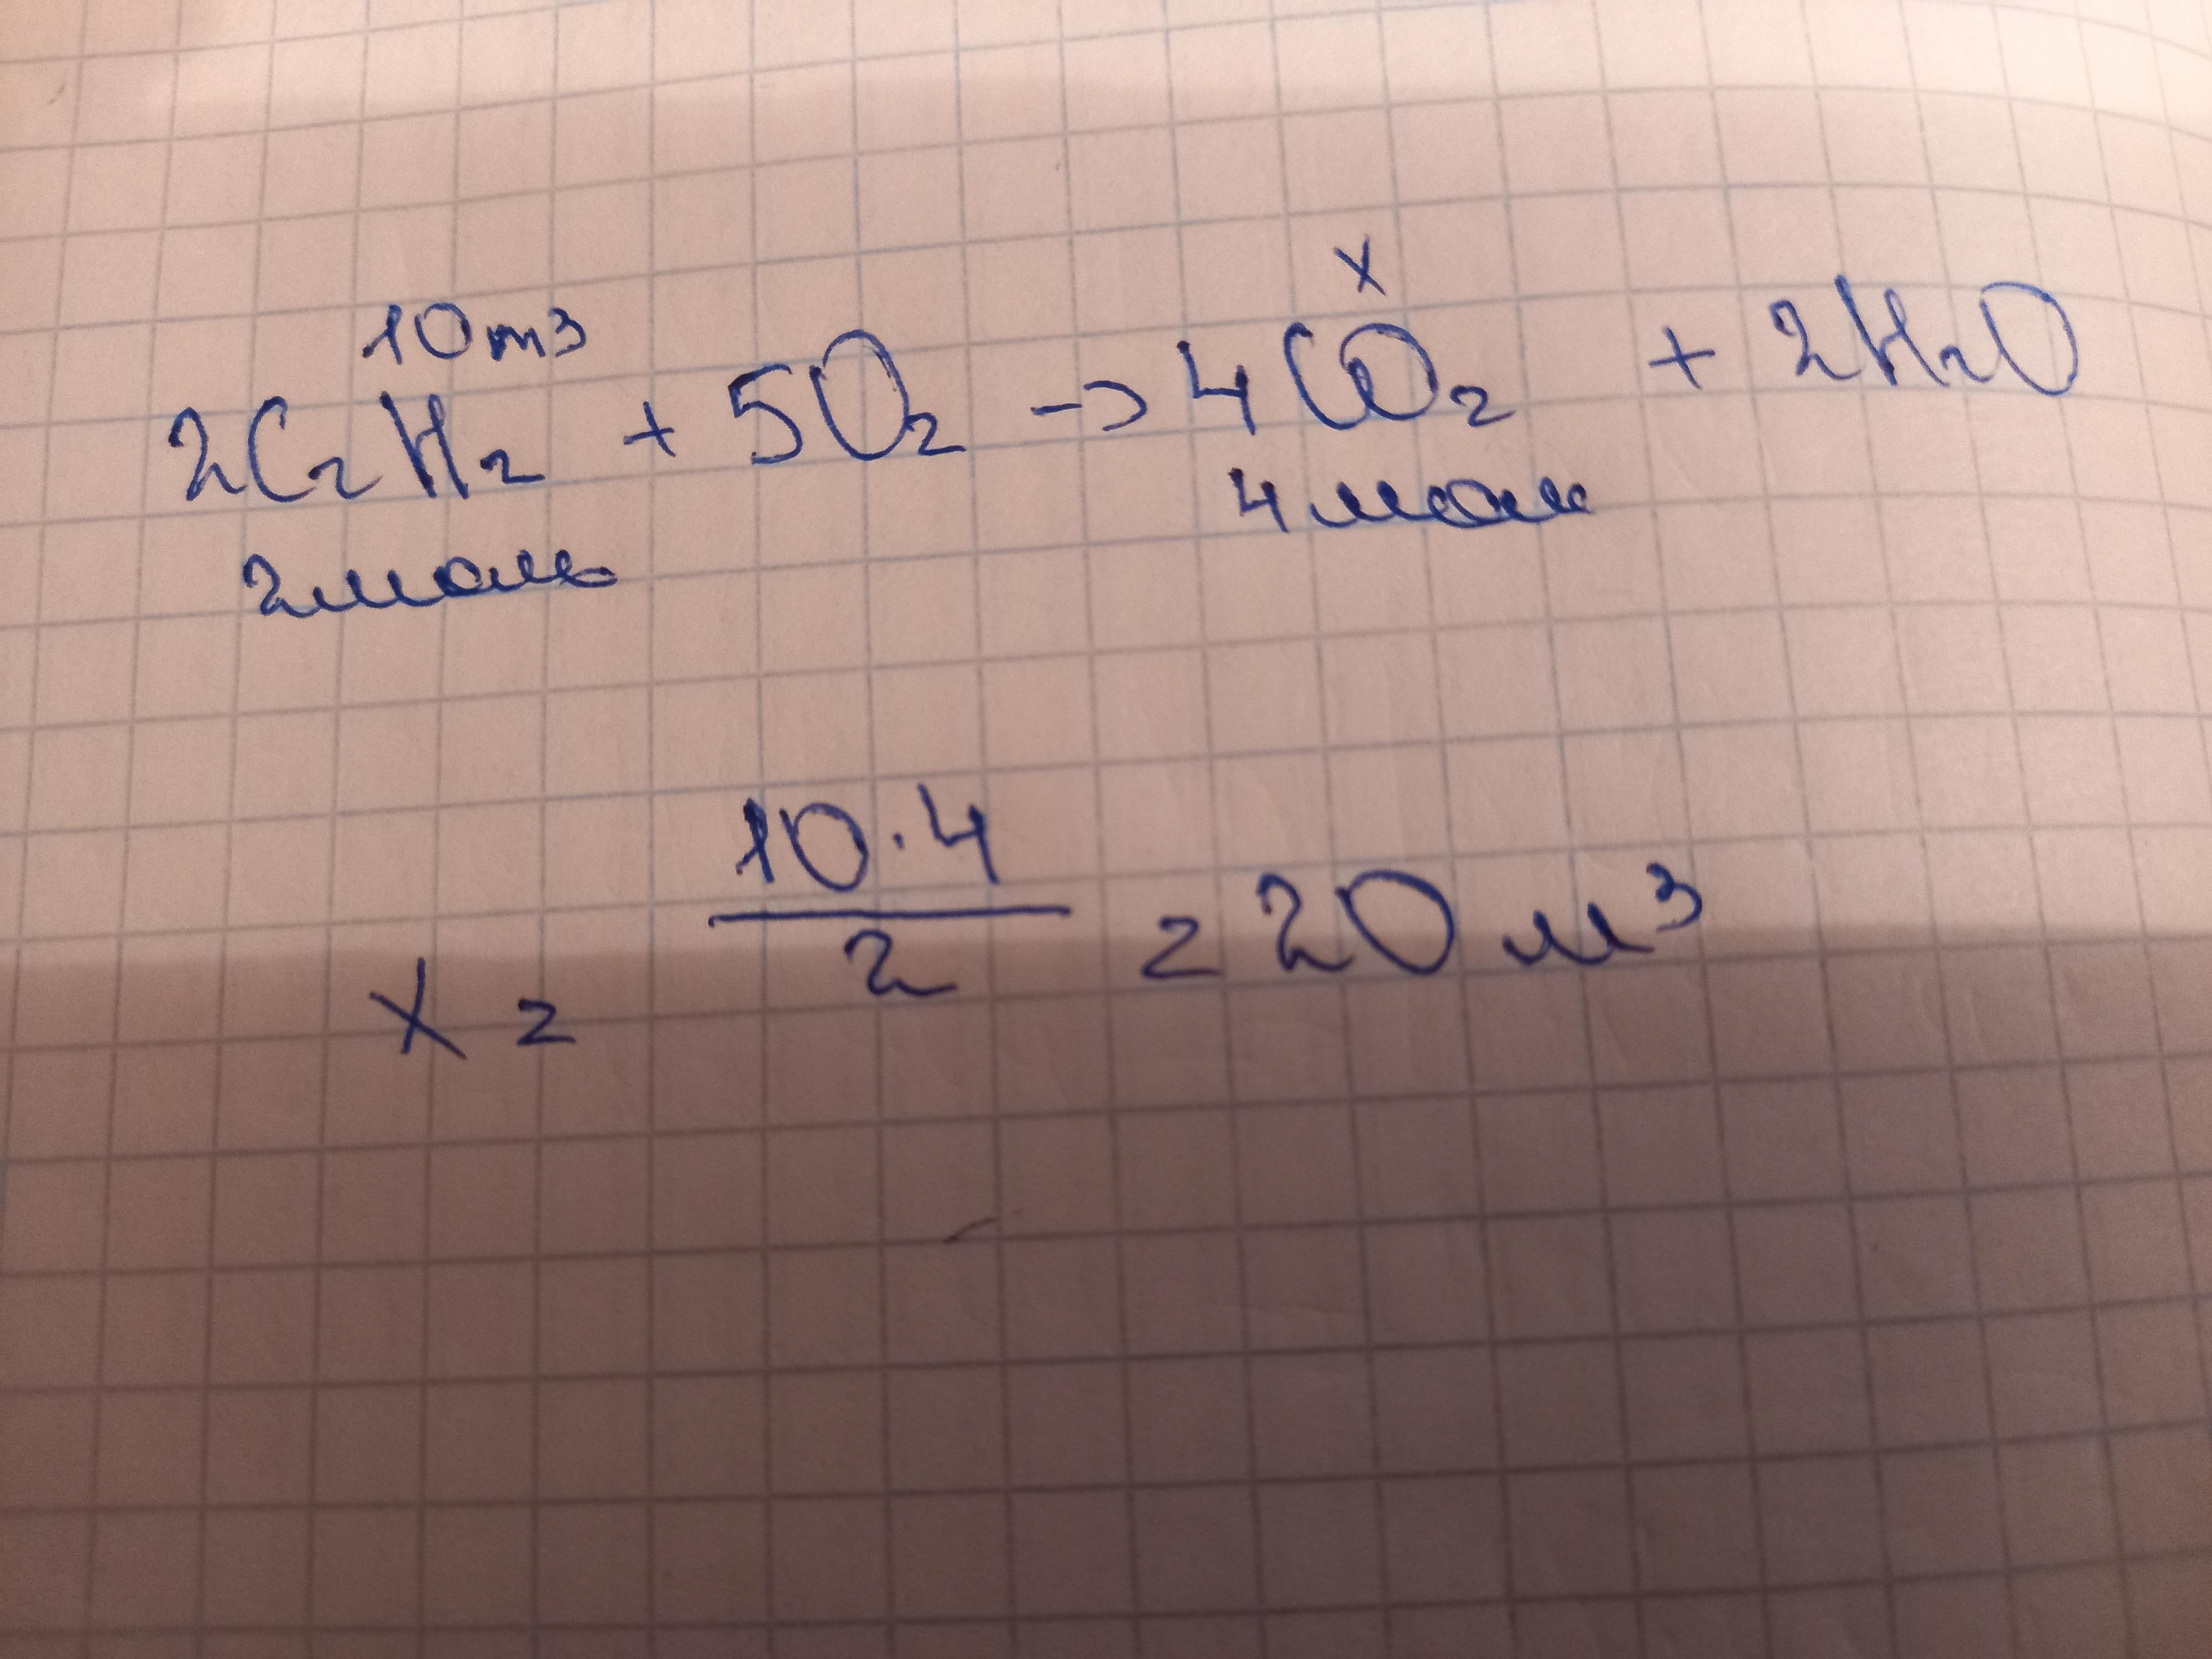 10m3 x
2C₂H₂ + 5O₂ → 4CO₂ + 2H₂O
2моль 4моль
x = 10·4/2 = 20 м³